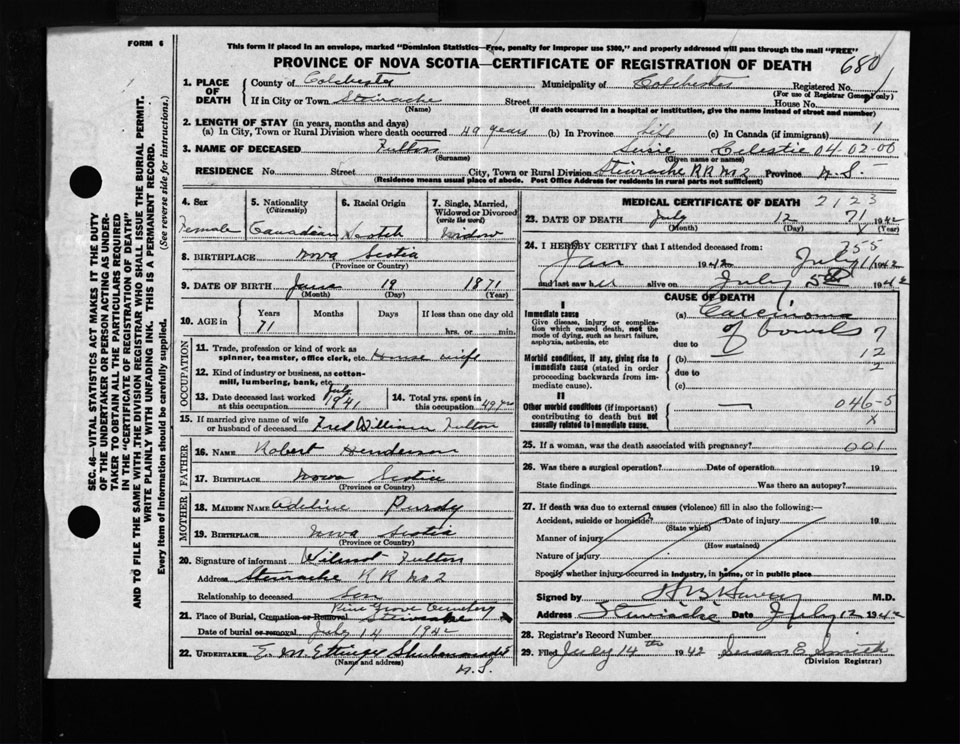 FORM 6
This form if placed in an envelope, marked "Dominion Statistics—Free, penalty for improper use $300," and properly addressed will pass through the mail "FREE"
PROVINCE OF NOVA SCOTIA—CERTIFICATE OF REGISTRATION OF DEATH
680
1. PLACE OF DEATH
County of Colchester Municipality of Colchester Registered No.
(For use of Registrar General only)
If in City or Town Stewiacke Street House No.
(Name) (If death occurred in a hospital or institution, give the name instead of street and number)
2. LENGTH OF STAY (in years, months and days)
(a) In City, Town or Rural Division where death occurred 49 years (b) In Province Life (c) In Canada (if immigrant) 1
3. NAME OF DECEASED Fulton Susie Celestie 04-02-00
(Surname) (Given name or names)
RESIDENCE No. Street City, Town or Rural Division Stewiacke RR No 2 Province N.S.
(Residence means usual place of abode. Post Office Address for residents in rural parts not sufficient)
4. Sex Female
5. Nationality (Citizenship) Canadian
6. Racial Origin Scotch
7. Single, Married, Widowed or Divorced (write the word) Widow
8. BIRTHPLACE Nova Scotia
(Province or Country)
9. DATE OF BIRTH June 19 1871
(Month) (Day) (Year)
10. AGE in Years Months Days If less than one day old
71 hrs. or min.
OCCUPATION
11. Trade, profession or kind of work as spinner, teamster, office clerk, etc. House wife
12. Kind of industry or business, as cotton-mill, lumbering, bank, etc.
13. Date deceased last worked at this occupation July 1941
14. Total yrs. spent in this occupation 49 yrs
15. If married give name of wife or husband of deceased Fred William Fulton
FATHER
16. NAME Robert Henderson
17. BIRTHPLACE Nova Scotia
(Province or Country)
MOTHER
18. MAIDEN NAME Adeline Purdy
19. BIRTHPLACE Nova Scotia
(Province or Country)
20. Signature of informant Wilmot Fulton
Address Stewiacke R R No 2
Relationship to deceased Son
21. Place of Burial, Cremation or Removal Pine Grove Cemetery Stewiacke
Date of burial or removal July 14 1942
22. UNDERTAKER E. M. Ettinger Shubenacadie N.S.
(Name and address)
MEDICAL CERTIFICATE OF DEATH 2123
23. DATE OF DEATH July 12 71 1942
(Month) (Day) (Year)
24. I HEREBY CERTIFY that I attended deceased from: 255
Jan 1942 July 11 1942
and last saw her alive on July 5th 1942
CAUSE OF DEATH
I
Immediate cause
Give disease, injury or complication which caused death, not the mode of dying, such as heart failure, asphyxia, asthenia, etc
(a) Carcinoma of bowels 7
due to
Morbid conditions, if any, giving rise to immediate cause (stated in order proceeding backwards from immediate cause).
(b) 12
due to 2
(c)
II
Other morbid conditions (if important) contributing to death but not causally related to immediate cause.
046-5
x
25. If a woman, was the death associated with pregnancy? 001
26. Was there a surgical operation? Date of operation 19
State findings Was there an autopsy?
27. If death was due to external causes (violence) fill in also the following:—
Accident, suicide or homicide? Date of injury 19
(State which)
Manner of injury
(How sustained)
Nature of injury
Specify whether injury occurred in industry, in home, or in public place
Signed by M.D.
Address Stewiacke Date July 12 1942
28. Registrar's Record Number
29. Filed July 14th 1942 Susan E Smith
(Division Registrar)
SEC. 46—VITAL STATISTICS ACT MAKES IT THE DUTY
OF THE UNDERTAKER OR PERSON ACTING AS UNDER-
TAKER TO OBTAIN ALL THE PARTICULARS REQUIRED
IN THE "CERTIFICATE OF REGISTRATION OF DEATH"
AND TO FILE THE SAME WITH THE DIVISION REGISTRAR WHO SHALL ISSUE THE BURIAL PERMIT.
WRITE PLAINLY WITH UNFADING INK. THIS IS A PERMANENT RECORD.
Every item of information should be carefully supplied. (See reverse side for instructions.)